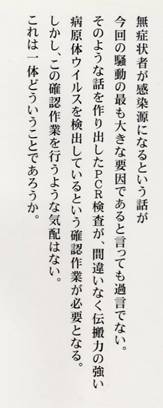 無症状者が感染源になるという話が
今回の騒動の最も大きな要因であると言っても過言でない。
そのような話を作り出したPCR検査が、間違いなく伝搬力の強い
病原体ウイルスを検出しているという確認作業が必要となる。
しかし、この確認作業を行うような気配はない。
これは一体どういうことであろうか。